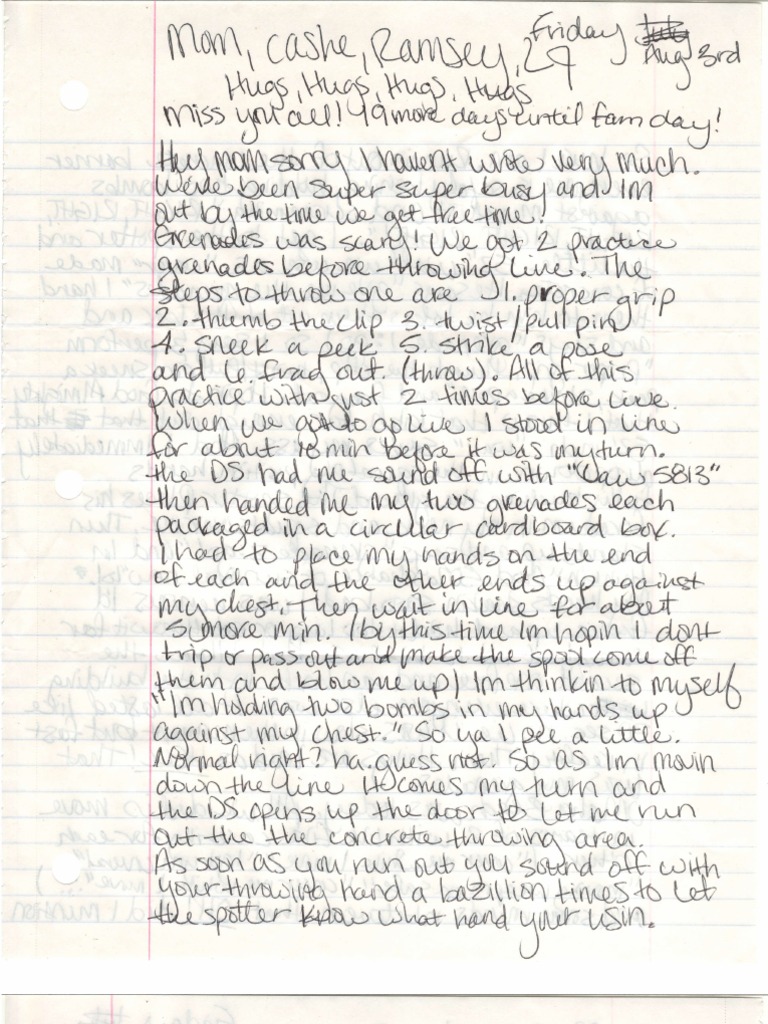 Friday
Mom, Cashe, Ramsey,
Aug 3rd
Hugs, Hugs, Hugs, Hugs
Miss you all! 49 more days until fam day!
Hey mom sorry I havent wrote very much.
Weve been super super busy and Im
out by the time we get free time!
Grenades was scary! We got 2 practice
grenades before throwing line. The
steps to throw one are 1. proper grip
2. thumb the clip 3. twist/pull pin
4. sneek a peek 5. strike a pose
and 6. frag out. (throw). All of this
practice with just 2 times before live.
When we got to go live I stood in line
for about 10 min before it was my turn.
the DS had me sound off with
then handed me my two grenades each
packaged in a circular cardboard box.
I had to place my hands on the end
of each and the other ends up against
my chest. Then wait in line for about
5 more min. (by this time Im hopin I dont
trip or pass out and make the spool come off
them and blow me up) Im thinkin to myself
"Im holding two bombs in my hands up
against my chest." So ya I pee a little.
Normal right? ha. guess not. So as Im movin
down the line it comes my turn and
the DS opens up the door to let me run
out the the concrete throwing area.
As soon as you run out you sound off with
your throwing hand a bazillion times to let
the spotter know what hand your usin.